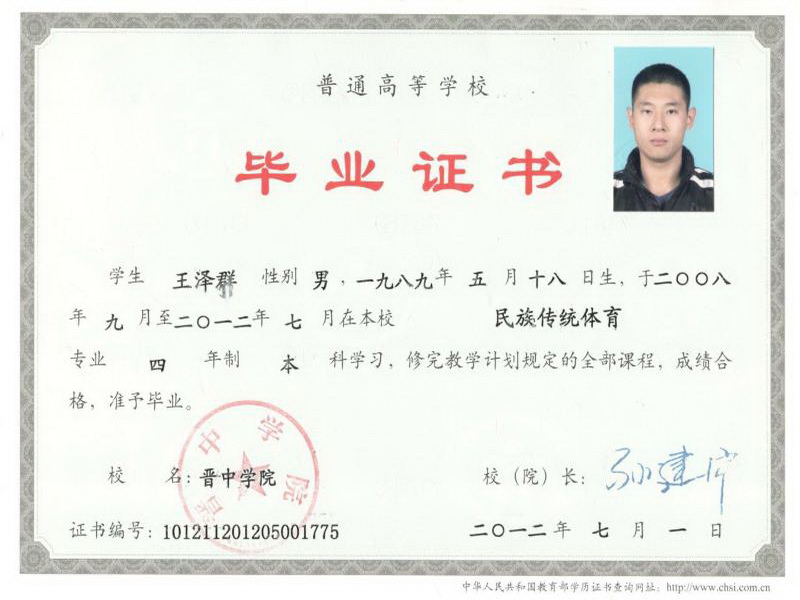 普通高等学校
毕业证书
学生 王泽群 性别 男，一九八九年 五 月十八 日生，于二〇〇八
年 九 月至二〇一二年 七 月在本校 民族传统体育
专业 四 年制 本 科学习，修完教学计划规定的全部课程，成绩合
格，准予毕业。
晋中学院
校 名：晋中学院 校（院）长：
证书编号：101211201205001775 二〇一二年 七 月 一 日
中华人民共和国教育部学历证书查询网址：http://www.chsi.com.cn